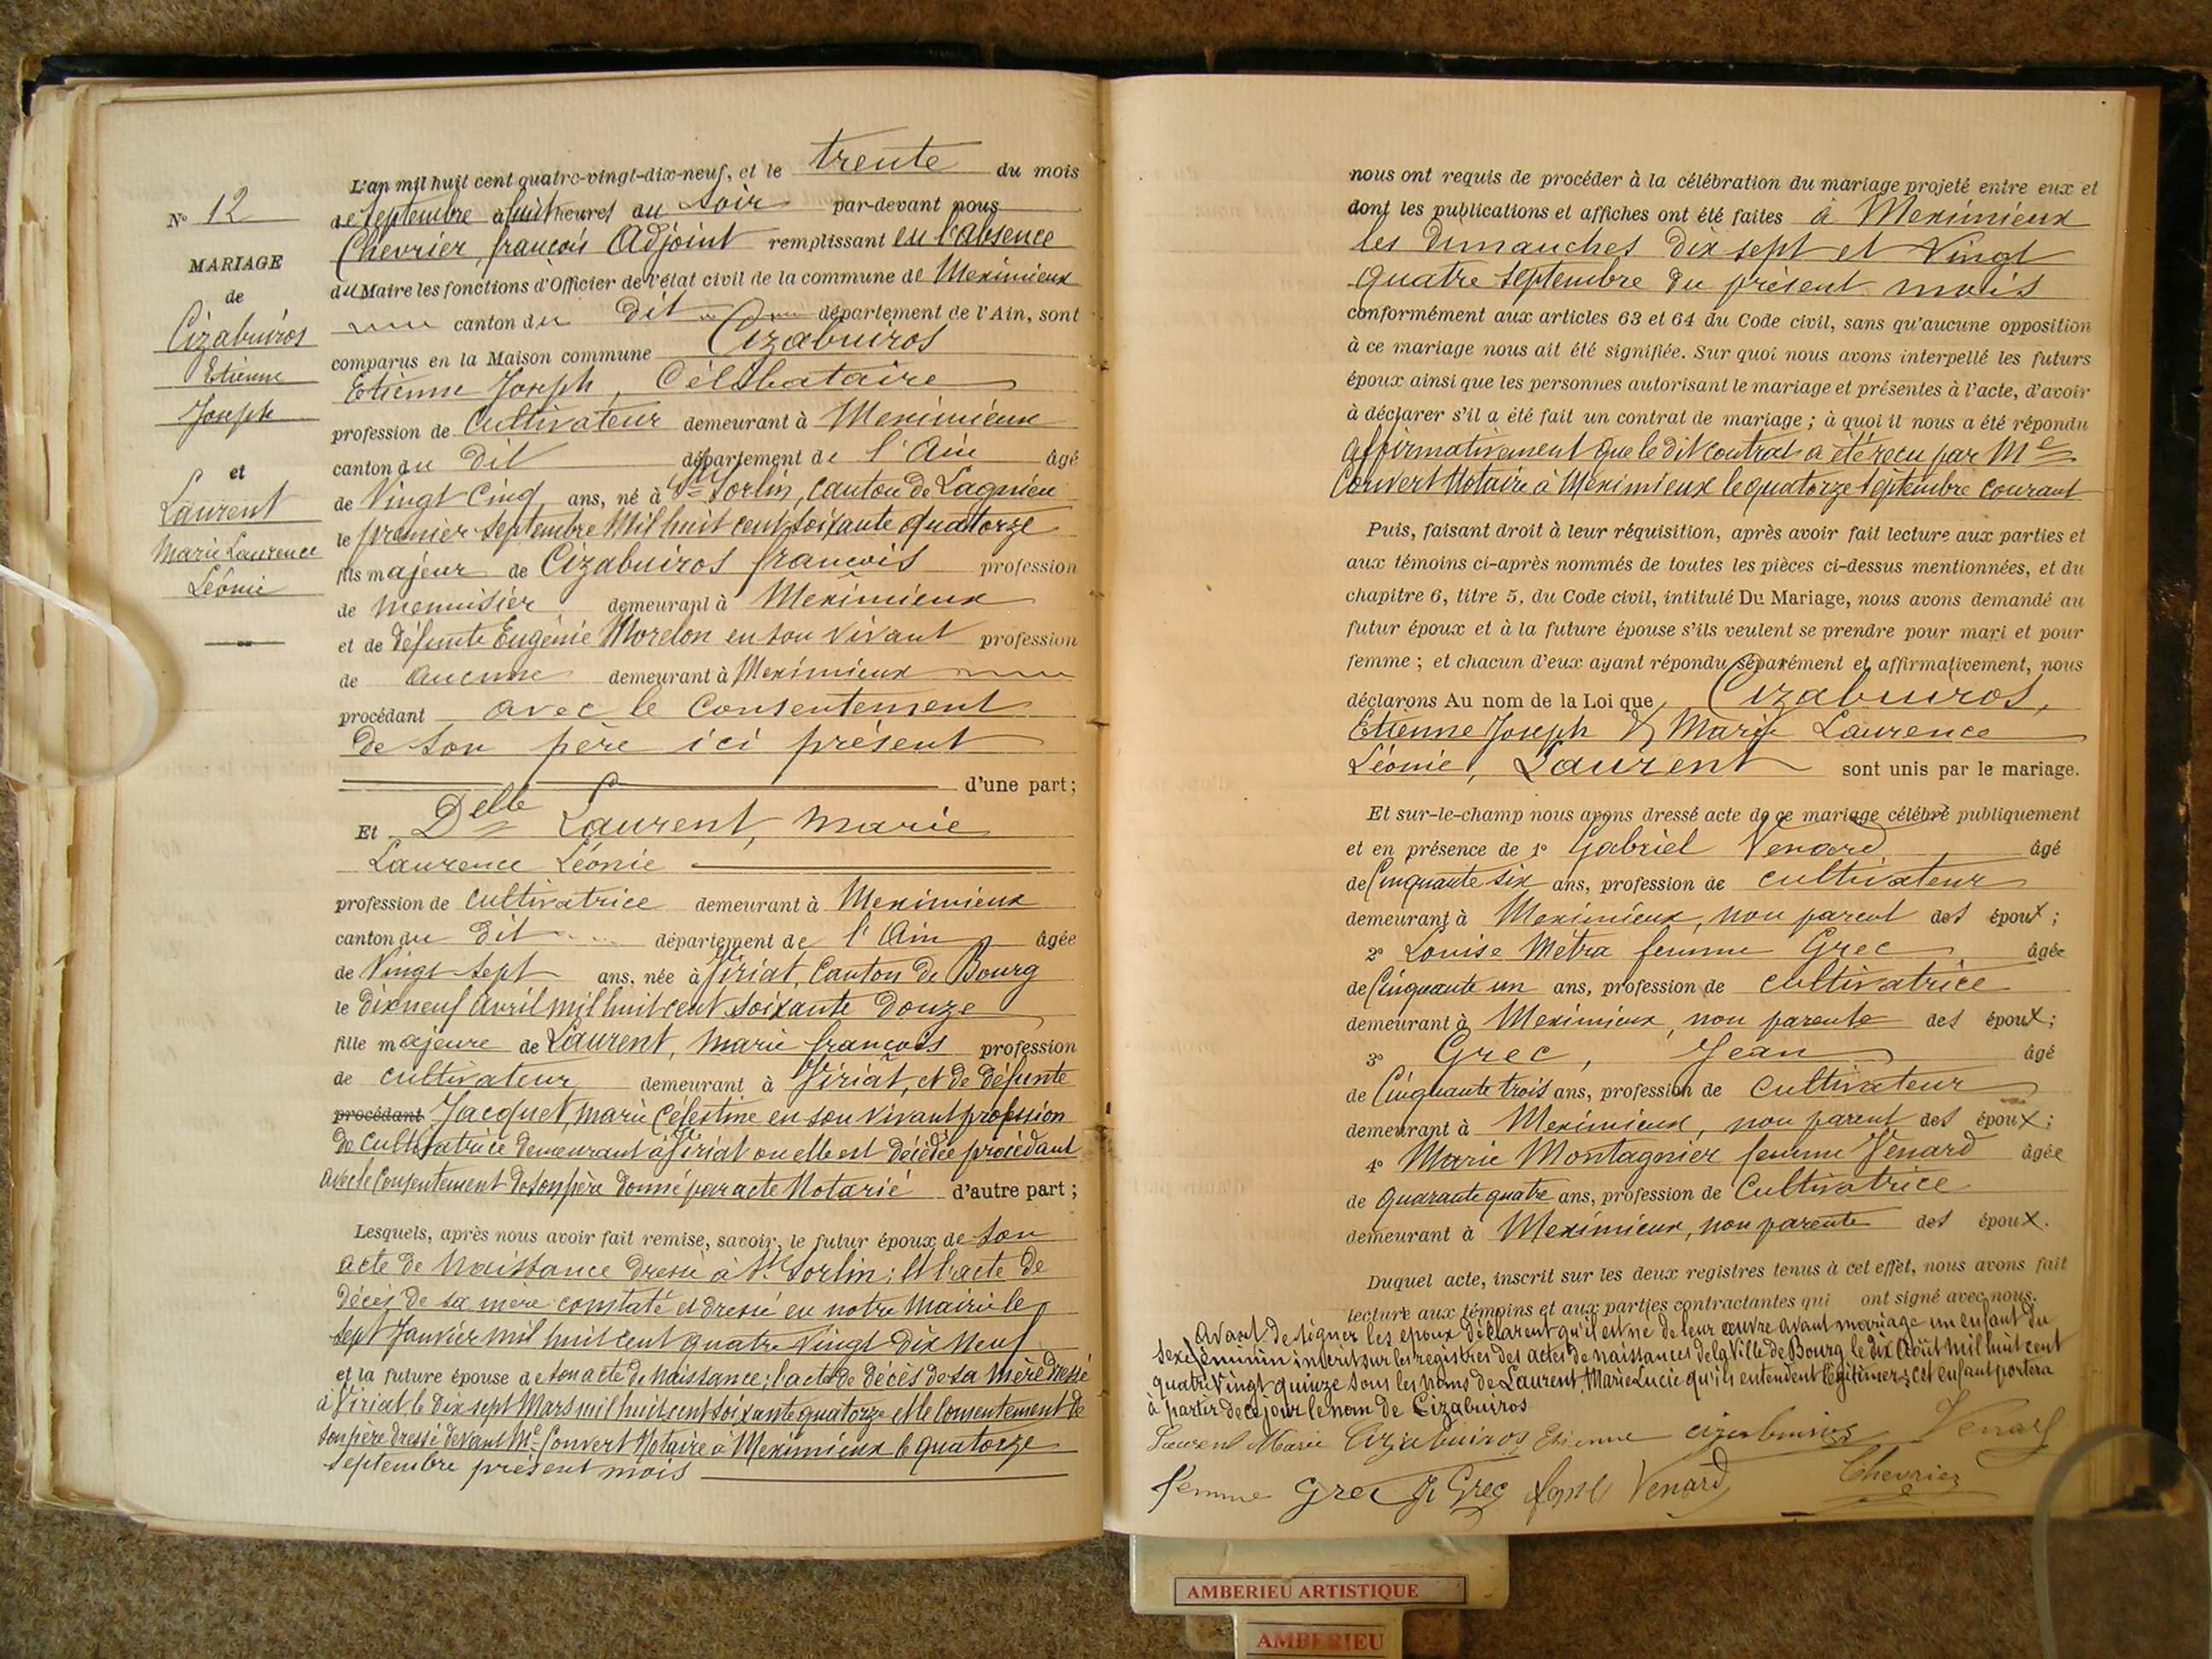 L'an mil huit cent quatre-vingt-dix-neuf, et le trente du mois
N° 12
de Septembre à huit heures du soir par-devant nous
Chevrier, françois Adjoint remplissant en l'absence
MARIAGE
du Maire les fonctions d'Officier de l'état civil de la commune de Meximieux
de
canton du dit département de l'Ain, sont
Cizabuiros
comparus en la Maison commune Cizabuiros
Etienne
Etienne Joseph, Célibataire
Joseph
profession de Cultivateur demeurant à Meximieux
et
canton du dit département de l'Ain âgé
Laurent
de Vingt Cinq ans, né à St Sorlin, canton de Lagnieu
Marie Laurence
le premier Septembre Mil huit cent soixante quatorze
Léonie
fils majeur de Cizabuiros françois profession
de menuisier demeurant à Meximieux
et de défunte Eugénie Morelon en son vivant profession
de aucune demeurant à Meximieux
procédant avec le Consentement
de son père ici présent
d'une part;
Et Delle Laurent, Marie
Laurence Léonie
profession de cultivatrice demeurant à Meximieux
canton du dit département de l'Ain âgée
de Vingt sept ans, née à Viriat, Canton de Bourg
le dix neuf avril mil huit cent soixante douze
fille majeure de Laurent, Marie françois profession
de cultivateur demeurant à Viriat, et de défunte
procédant Jacquet, Marie Célestine en son vivant profession
de cultivatrice demeurant à Viriat ou elle est décédée procédant
avec le Consentement de son père donné par acte Notarié d'autre part;
Lesquels, après nous avoir fait remise, savoir, le futur époux de son
acte de Naissance dressé à St Sorlin; et l'acte de
décès de sa mère constaté et dressé en notre Mairie le
sept Janvier mil huit cent quatre Vingt Dix Neuf
et la future épouse de son acte de Naissance; l'acte de décès de sa mère dressé
à Viriat le dix sept Mars mil huit cent soixante quatorze et le consentement de
son père dressé devant Me Convert Notaire à Meximieux le quatorze
septembre présent mois
nous ont requis de procéder à la célébration du mariage projeté entre eux et
dont les publications et affiches ont été faites à Meximieux
les dimanches dix sept et Vingt
quatre Septembre du présent mois
conformément aux articles 63 et 64 du Code civil, sans qu'aucune opposition
à ce mariage nous ait été signifiée. Sur quoi nous avons interpellé les futurs
époux ainsi que les personnes autorisant le mariage et présentes à l'acte, d'avoir
à déclarer s'il a été fait un contrat de mariage; à quoi il nous a été répondu
affirmativement que le dit contrat a été reçu par Me
Convert Notaire à Meximieux le quatorze septembre courant
Puis, faisant droit à leur réquisition, après avoir fait lecture aux parties et
aux témoins ci-après nommés de toutes les pièces ci-dessus mentionnées, et du
chapitre 6, titre 5, du Code civil, intitulé Du Mariage, nous avons demandé au
futur époux et à la future épouse s'ils veulent se prendre pour mari et pour
femme; et chacun d'eux ayant répondu séparément et affirmativement, nous
déclarons Au nom de la Loi que Cizabuiros,
Etienne Joseph & Marie Laurence
Léonie, Laurent sont unis par le mariage.
Et sur-le-champ nous avons dressé acte de ce mariage célébré publiquement
et en présence de 1° Gabriel Venard âgé
de Cinquante six ans, profession de cultivateur
demeurant à Meximieux, non parent des époux;
2° Louise Métra femme Grec âgée
de Cinquante un ans, profession de cultivatrice
demeurant à Meximieux, non parente des époux;
3° Grec, Jean âgé
de Cinquante trois ans, profession de cultivateur
demeurant à Meximieux, non parent des époux;
4° Marie Montagnier femme Venard âgée
de quarante quatre ans, profession de Cultivatrice
demeurant à Meximieux, non parente des époux.
Duquel acte, inscrit sur les deux registres tenus à cet effet, nous avons fait
lecture aux témoins et aux parties contractantes qui ont signé avec nous.
Avant de signer les epoux déclarent qu'il est né de leur œuvre avant mariage un enfant du
sexe féminin inscrit sur les registres des actes de naissances de la Ville de Bourg le dix Août mil huit cent
quatre Vingt quinze sous les noms de Laurent, Marie Lucie qu'ils entendent légitimer; cet enfant portera
à partir de ce jour le nom de Cizabuiros
Laurent Marie Cizabuiros Etienne Cizabuiros Venard
femme Grec J Grec fame Venard Chevrier
AMBERIEU ARTISTIQUE
AMBERIEU